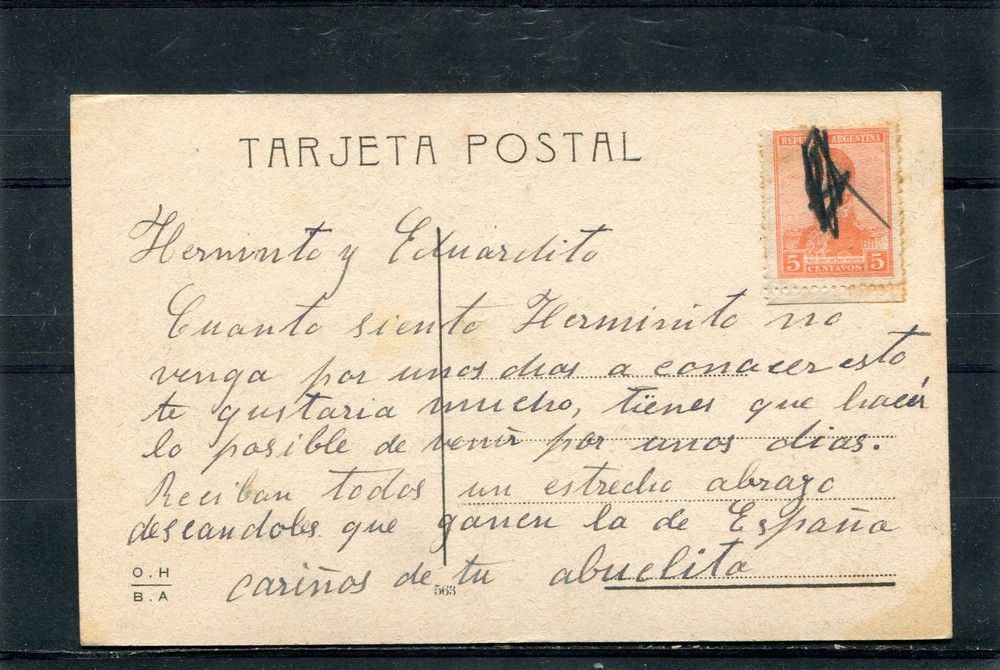 TARJETA POSTAL
REPUBLICA ARGENTINA
5 CENTAVOS 5
Herminito y Eduardito
Cuanto siento Herminito no
venga por unos dias a conacer esto
te gustaria mucho, tienes que hacer
lo posible de venir por unos dias.
Reciban todos un estrecho abrazo
deseandoles que ganen la de España
cariños de tu abuelita
O.H
B.A
563